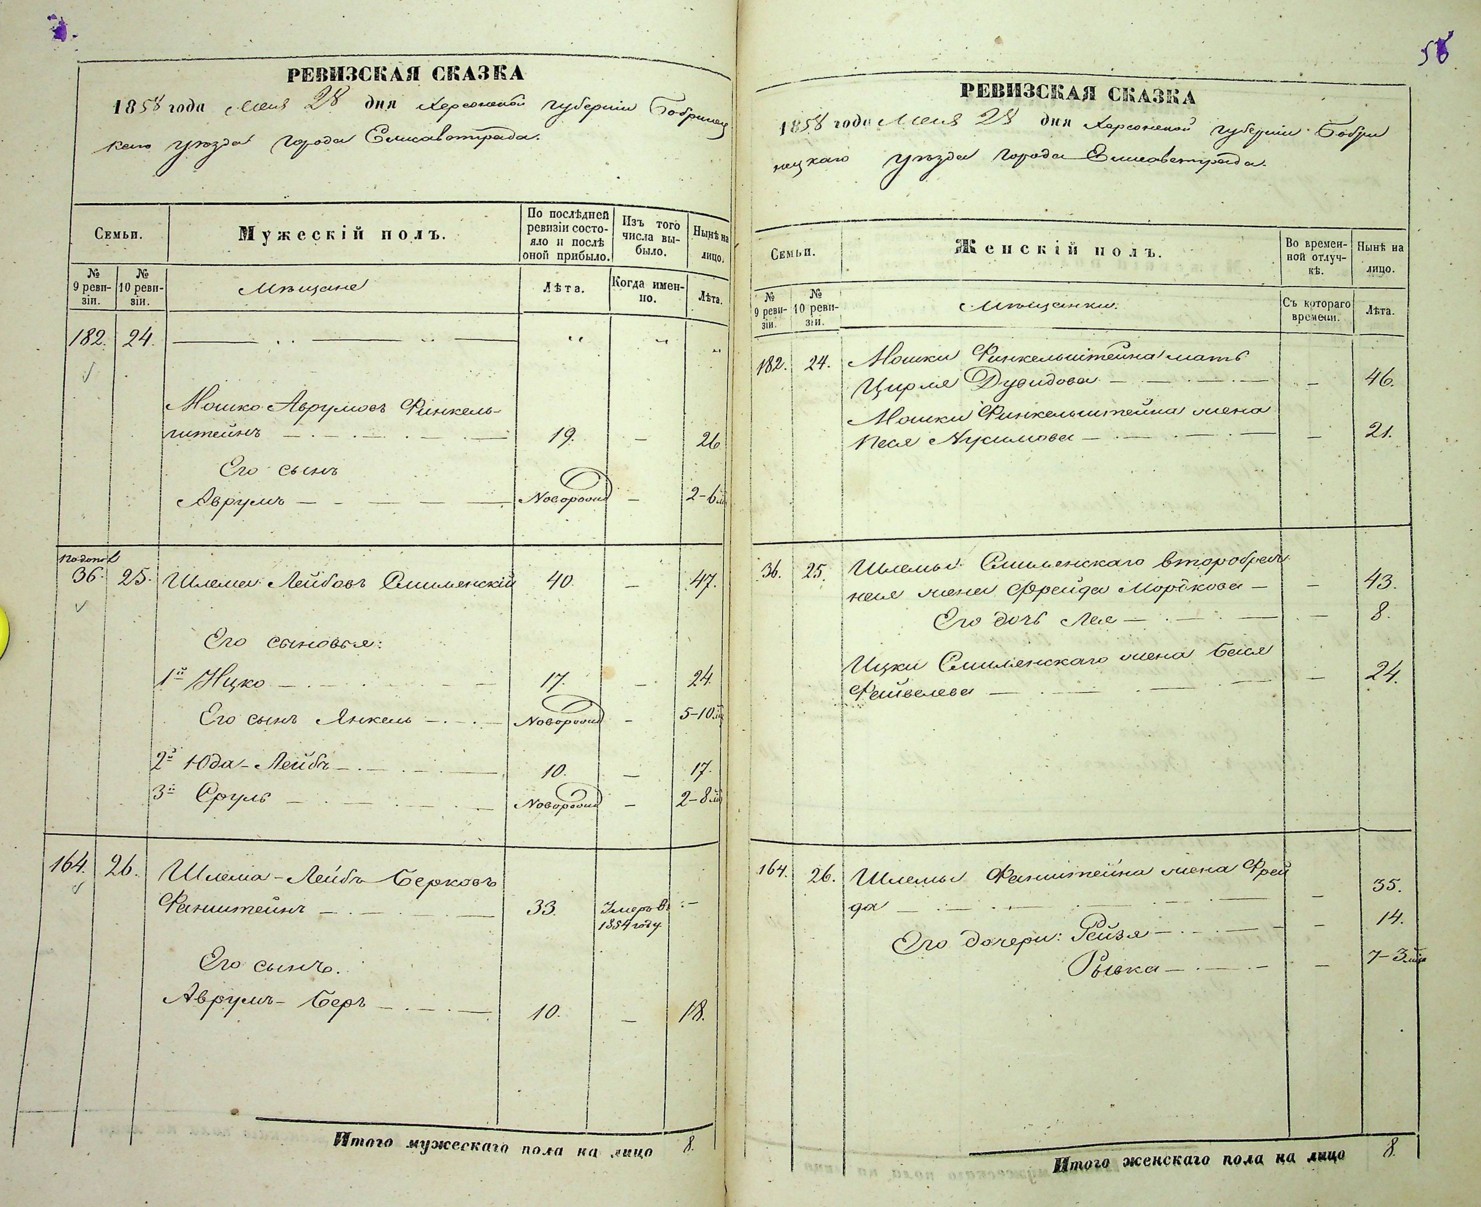 РЕВИЗСКАЯ СКАЗКА
1858 года Мая 28 дня Херсонской губернии Бобринец
каго уѣзда города Елисаветграда.
Семьи.
Мужескій полъ.
По послѣдней ревизіи состояло и послѣ оной прибыло.
Изъ того числа выбыло.
Нынѣ на лицо.
№ 9 ревизіи.
№ 10 ревизіи.
Мѣщане
Лѣта.
Когда именно.
Лѣта.
182. 24.
Мошко Аврумовъ Финкель-
штейнъ 19. 26
Его сынъ
Аврумъ Новорожд 2-6 м
36. 25. Шлема Лейбовъ Смилянскій 40. 47.
Его сыновья:
1й Ицко 17. 24
Его сынъ Янкель Новорожд 5-10 м
2й Юда-Лейбъ 10. 17.
3й Сруль Новорожд 2-8 м
164. 26. Шлема-Лейбъ Берковъ
Фанштейнъ 33. Умеръ въ 1854 году
Его сынъ.
Аврумъ-Беръ 10. 18.
Итого мужескаго пола на лицо 8.
58
РЕВИЗСКАЯ СКАЗКА
1858 года Мая 28 дня Херсонской губерніи Бобри
нецкаго уѣзда города Елисаветграда.
Семьи.
Женскій полъ.
Во временной отлучкѣ.
Нынѣ на лицо.
№ 9 ревизіи.
№ 10 ревизіи.
Мѣщанки.
Съ котораго времени.
Лѣта.
182. 24. Мошки Финкельштейна мать
Цирля Дувидова 46.
Мошки Финкельштейна жена
Песя Нухимова 21.
36. 25. Шлемы Смилянскаго второбрач
ная жена Фрейда Мордкова 43.
Его дочь Лея 8.
Ицки Смилянскаго жена Бася
Файвелева 24.
164. 26. Шлемы Фанштейна жена Фрей
да 35.
Его дочери: Рейзя 14.
Рывка 7-3 м
Итого женскаго пола на лицо 8.